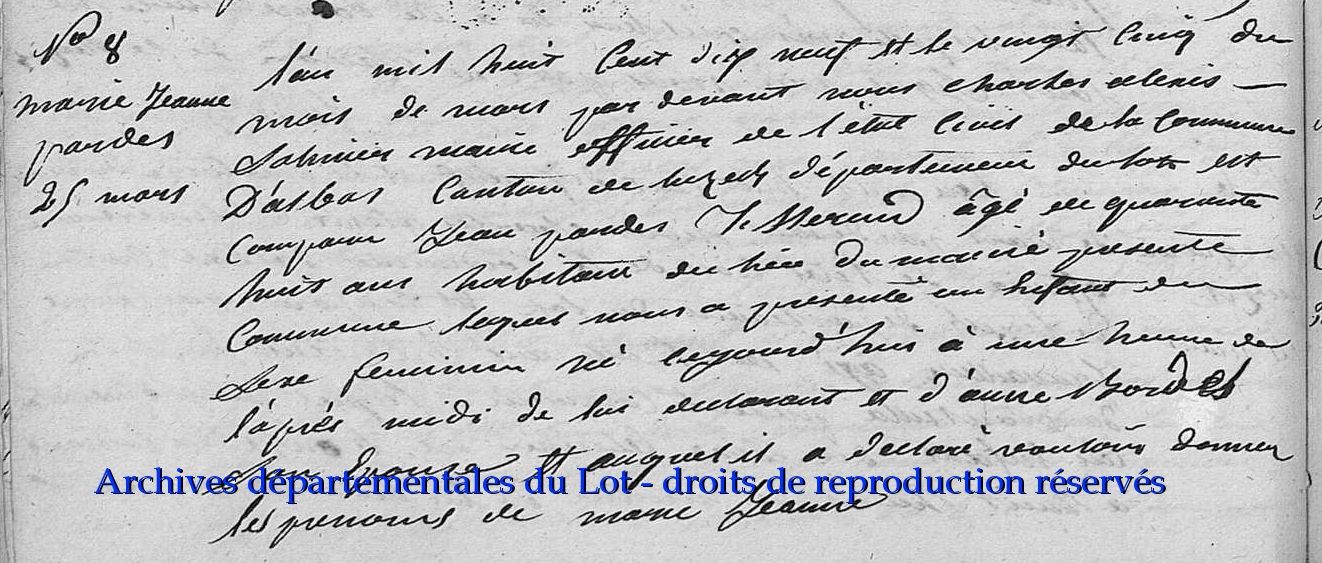 No 8
marie Jeanne
pardes
25 mars
l'an mil huit Cent dix neuf et le vingt Cinq du
mois de mars par devant nous charles alexis
maire officier de l'état Civil de la Commune
D'albas Canton de luzech département du lot est
Comparu Jean pardes âgé de quarante
huit ans habitant du lieu du presente
Commune lequel nous a presenté un Enfant du
Sexe feminin né aujourd'hui à une heure de
l'après midi de lui declarant et d'anne Bordes
Son Epouse et auquel il a declaré vouloir donner
les prenoms de marie Jeanne
Archives départementales du Lot - droits de reproduction réservés